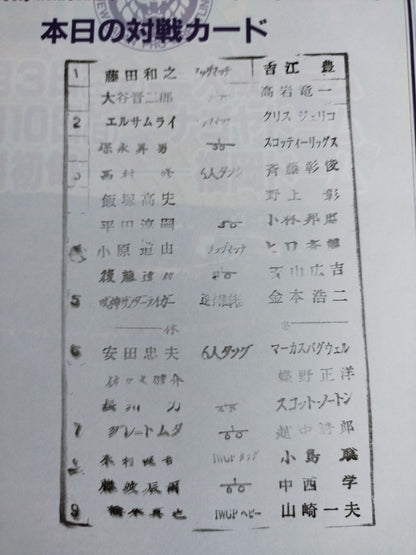 本日の対戦カード
1 藤田和之 タッグマッチ 吉江 豊
大谷晋二郎 高岩竜一
2 エルサムライ クリス ジェリコ
保永昇男 30 スコッティーリッグス
西村 修 6人タッグ 斉藤彰俊
飯塚高史 野上 彰
平田淳嗣 30 小林邦昭
4 小原道由 ヒロ斉藤
後藤達俊 30 天山広吉
5 獣神サンダーライガー 金本浩二
休
6 安田忠夫 6人タッグ マーカスバグウェル
佐々木健介 蝶野正洋
長州 力 スコット・ノートン
7 グレートムタ 1/60 越中詩郎
木村健吾 IWGPタッグ 小島 聡
藤波辰爾 1/60 中西 学
9 橋本真也 IWGPヘビー 山崎一夫